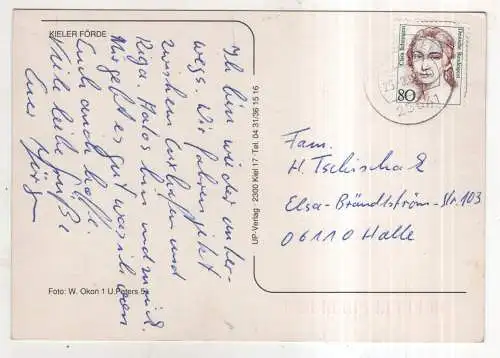 KIELER FÖRDE
Ich bin wieder unter-
wegs. Wir fahren jetzt
zwischen Cuxhafen und
Riga. Hin und zurück.
Mir geht es gut was ich von
Euch auch hoffe.
Viele liebe Grüße
Euer Jürgen
Foto: W. Okon 1 U.Peters 5x
LIP-Verlag 2300 Kiel 17 Tel. 04 31/36 15 16
Clara Schumann
Deutsche Bundespost
80
Fam.
H. Tschischak
Elsa-Brändtström-Str. 103
06110 Halle